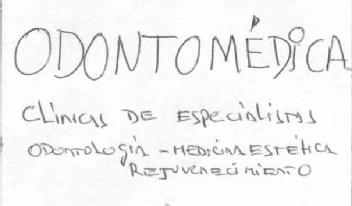 ODONTOMÉDICA
CLINICAS DE ESPECIALISTAS
ODONTOLOGÍA - MEDICINA ESTÉTICA
REJUVENECIMIENTO